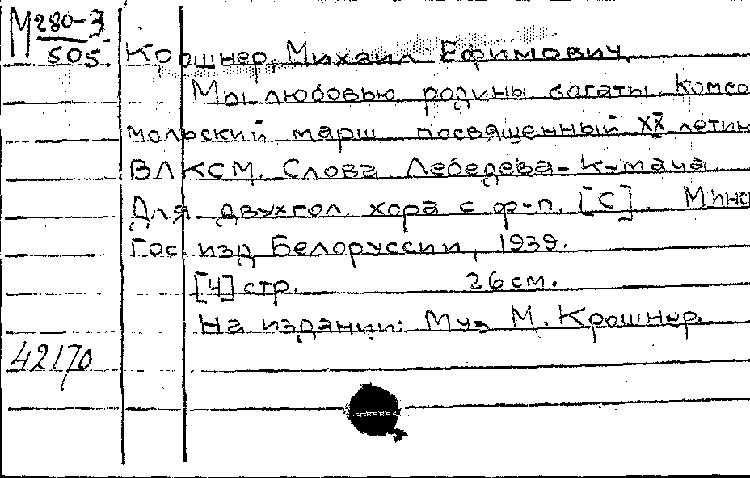 М 280-3
505
Коршнер, Михаил Ефимович
Мы любовью родины богаты. Комсо
мольский марш, посвященный XX летию
ВЛКСМ. Слова Лебедева-Кумача
Для двухгол. хора с ф-п. [С]. Минс
Гос. изд Белоруссии, 1939.
[4] стр. 26 см.
На издании: Муз М. Крошнер.
42170